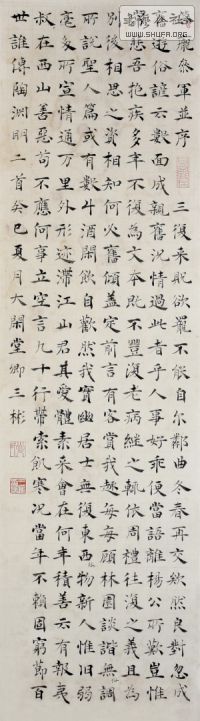 答龐參軍並序 三復來貺欲罷不能自尔鄰曲冬春再交欵然良對忽成
舊遊俗諺云數面成親舊況情過此者乎人事好乖便當語離楊公所歎豈惟
常悲吾抱疾多年不復為文本既不豐復老病継之輒依周禮往復之義且為
別後相思之資相知何必舊傾蓋定前言有客賞我趣每每顧林園談諧無調
所說聖人篇或有數斗酒閒飲自歡然我實幽居士無復東西緣物新人惟旧弱
毫多所宣情通万里外形迹滯江山君其愛體素來會在何年積善云有報夷
叔在西山善惡苟不應何事立空言九十行帶索飢寒況當年不賴固窮節百
世誰傳陶淵明二首癸巳夏月大開堂卿三彬
SHUFA.ORG